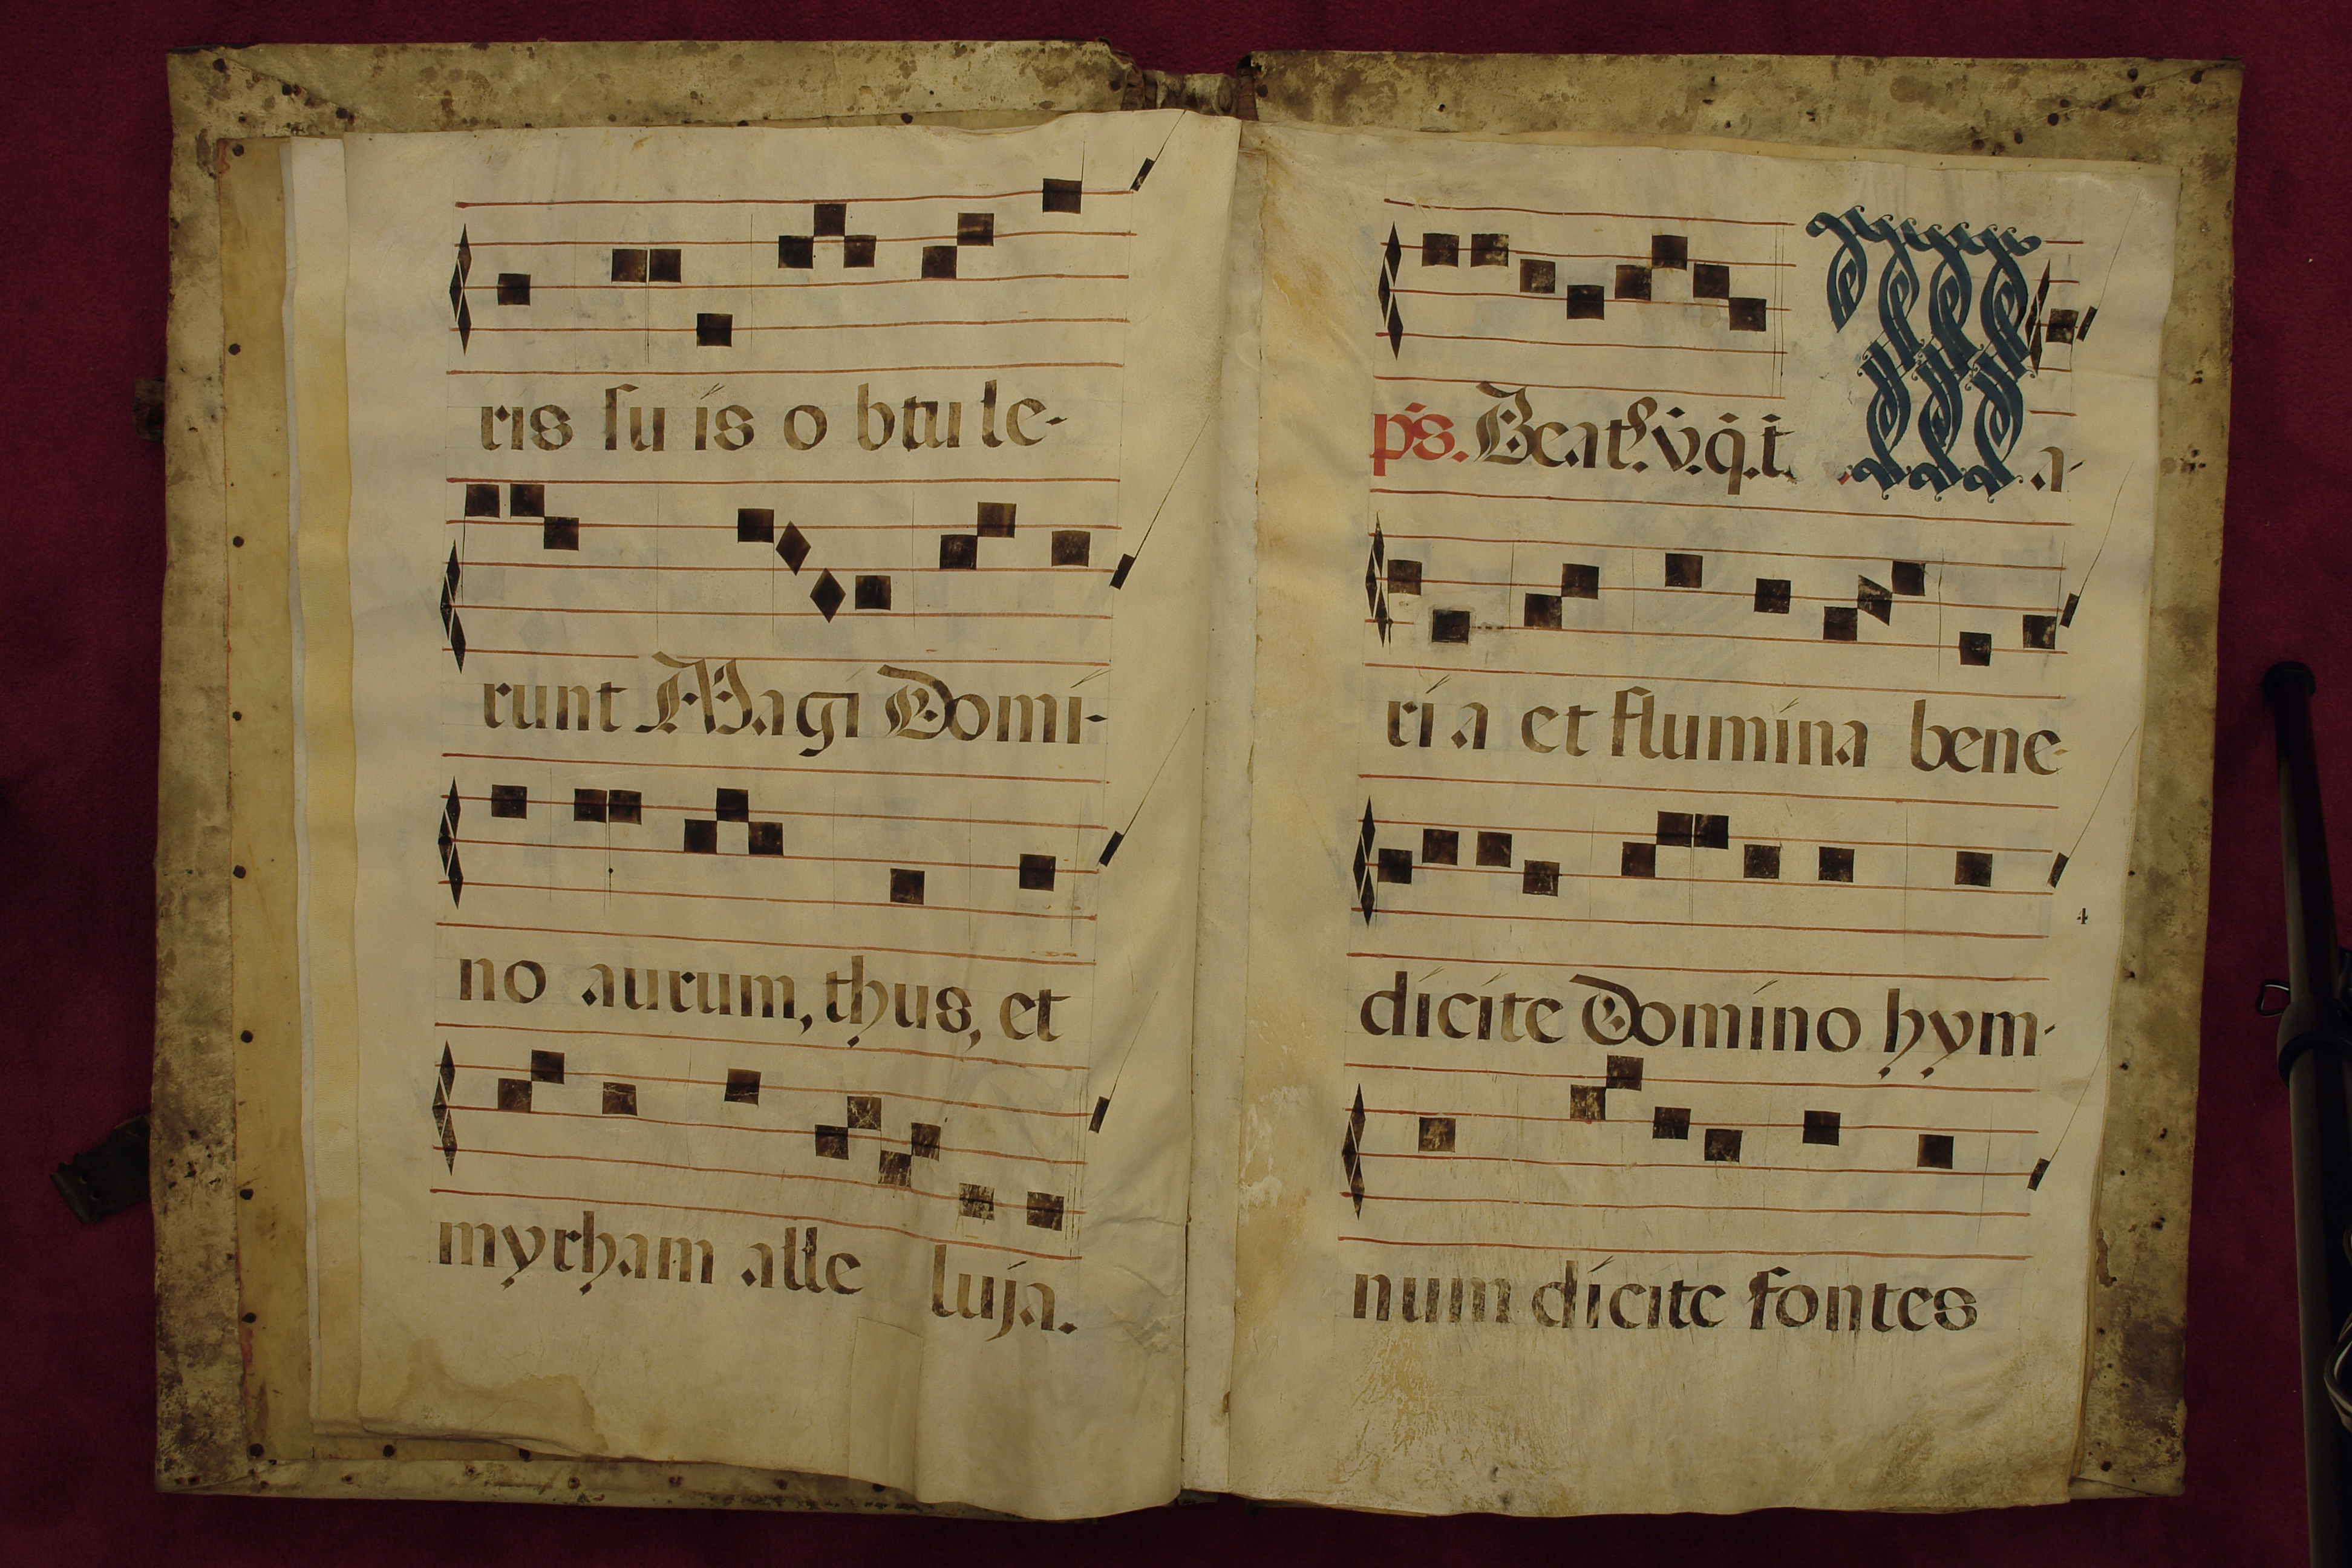 ris su ís o btu le-
runt Magi Domí-
no aurum, thus, et
myrham alle luja.
ps. Beat⁹. v. q. t. M a-
rí a et flumína bene-
dícíte Domíno hym-
4
num dícite fontes